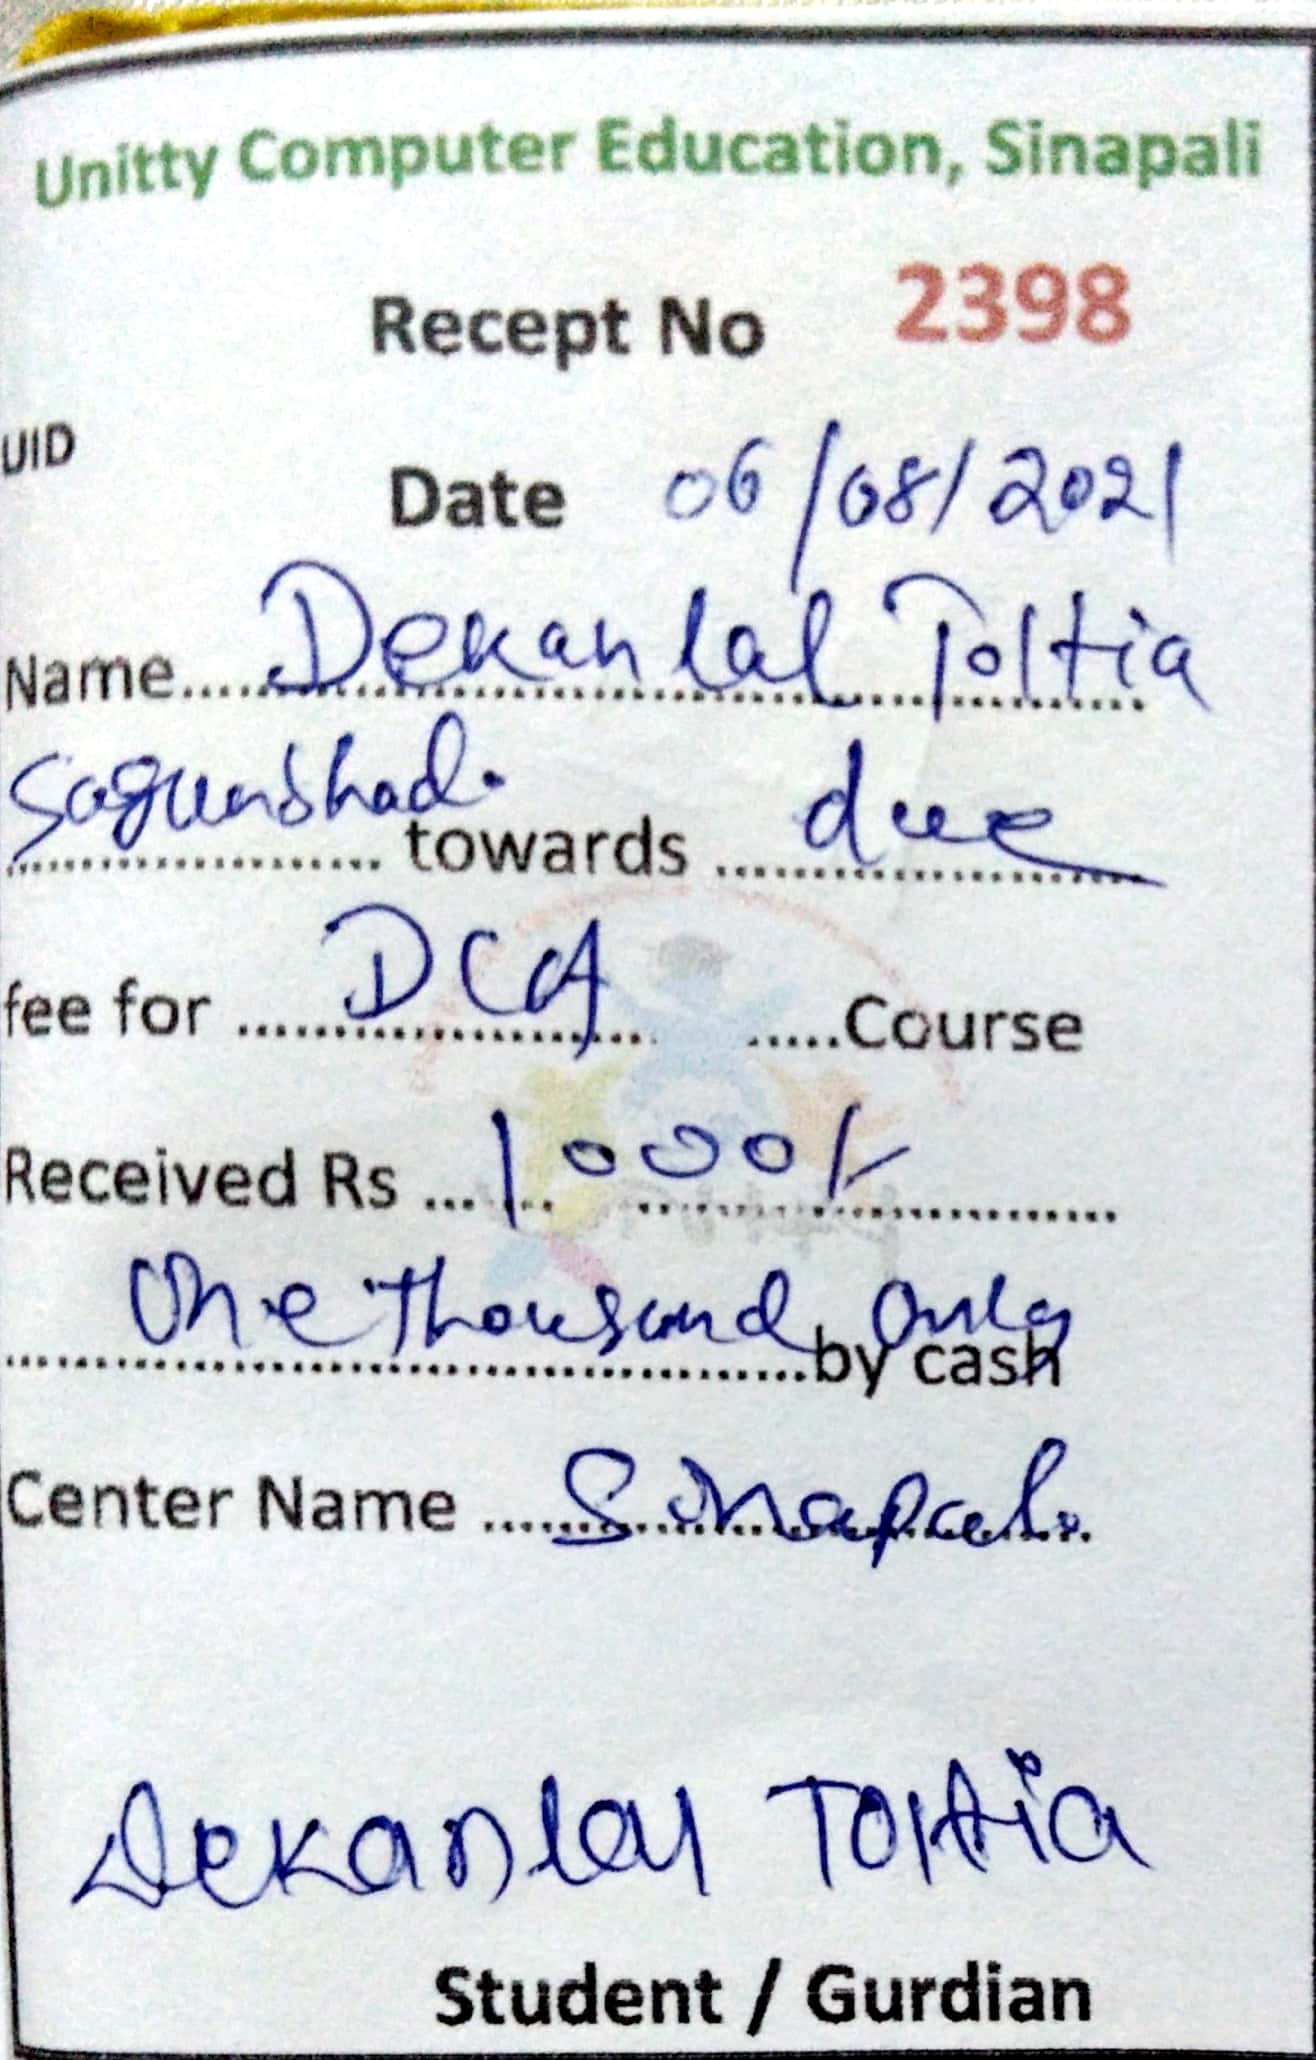 Unitty Computer Education, Sinapali
Recept No 2398
UID
Date 06/08/2021
Name........Dekanlal Toltia
Sagunbhadi
.................... towards ...... due
fee for ...... DCA ...... Course
Received Rs ... 1000/-
One thousand Only
..............................by cash
Center Name ...... Sinapali
Dekanlal Toltia
Student / Gurdian